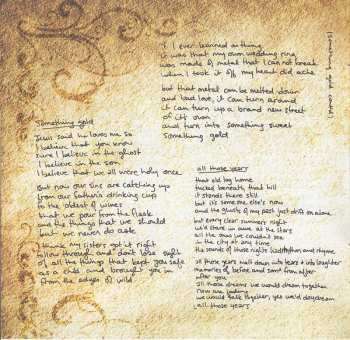 Something Gold
Jesus said he loves me so
I believe that you know
sure I believe in the ghost
I believe in the son
I believe that we all were holy once
But now our sins are catching up
from our father's drinking cup
to the oldest of wines
that we pour from the flask
and the things that we should
but we never do ask
I think my sisters got it right
follow through and don't lose sight
of all the things that kept you safe
as a child and brought you in
from the edges of wild
(Something gold contd)
If I ever learned anything
it was that my own wedding ring
was made of metal that I can not break
when I took it off my heart did ache
but that metal can be melted down
and lord love, it can turn around
it can turn up a brand new street
of it's own
and turn into something sweet
Something gold
all those years
that old big home
tucked beneath that hill
it stands there still
but it's someone else's now
and the ghosts of my past just drift on alone
but every clear summer night
we'd stare in awe at the stars
all the ones we couldn't see
in the city at any time
the sounds of those nights and rhyme
all those years melt down into tears + into laughter
memories of before and some from after
after you
all those dreams we would dream together
now are
we would talk together, yes we'd daydream
all those years